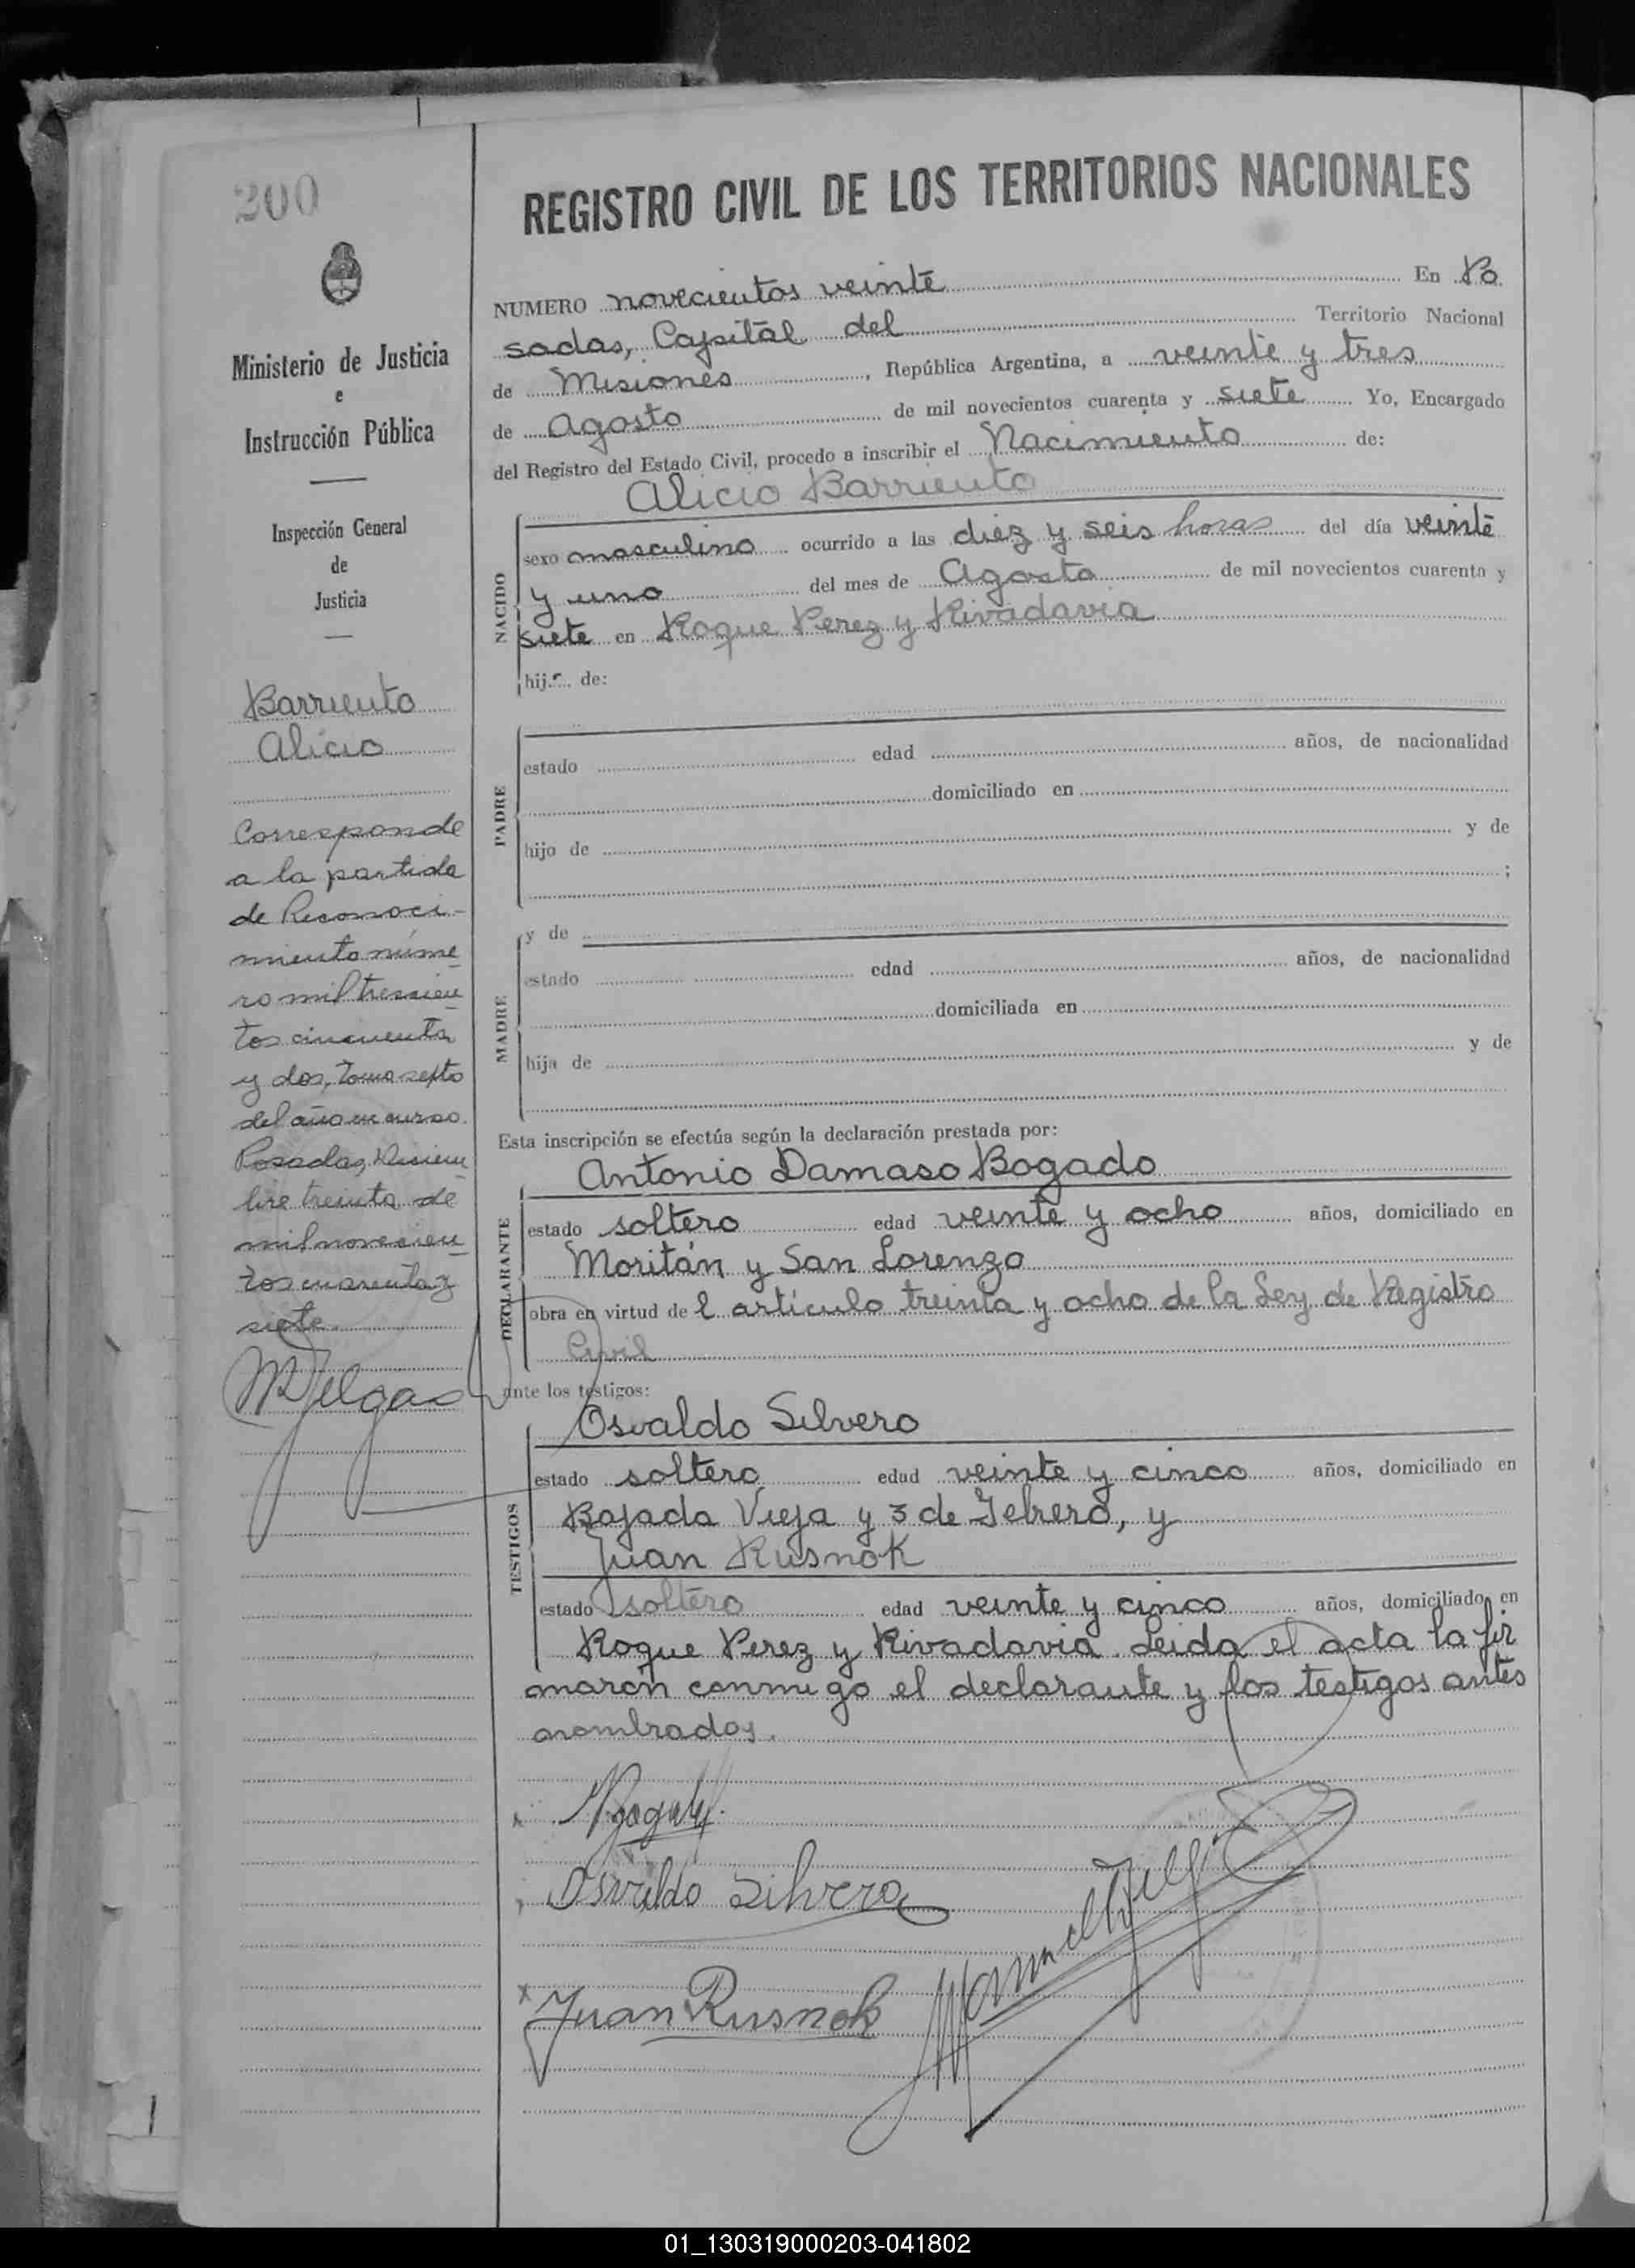 200
Ministerio de Justicia
e
Instrucción Pública
Inspección General
de
Justicia
Barriento
Alicio
Corresponde
a la partida
de Reconoci-
miento núme
ro mil trescien
tos cincuenta
y dos, tomo septo
del año en curso.
Posadas, Diciem
bre treinta de
mil novecien
tos cuarenta y
siete.
REGISTRO CIVIL DE LOS TERRITORIOS NACIONALES
NUMERO novecientos veinte En Po
sadas, Capital del Territorio Nacional
de Misiones, República Argentina, a veinte y tres
de Agosto de mil novecientos cuarenta y siete Yo, Encargado
del Registro del Estado Civil, procedo a inscribir el Nacimiento de:
Alicio Barriento
NACIDO
sexo masculino ocurrido a las diez y seis horas del día veinte
y uno del mes de Agosto de mil novecientos cuarenta y
siete en Roque Perez y Rivadavia
hij.. de:
PADRE
estado edad años, de nacionalidad
domiciliado en
hijo de y de
;
MADRE
y de
estado edad años, de nacionalidad
domiciliada en
hija de y de
Esta inscripción se efectúa según la declaración prestada por:
Antonio Damaso Bogado
DECLARANTE
estado soltero edad veinte y ocho años, domiciliado en
Moritán y San Lorenzo
obra en virtud de l artículo treinta y ocho de la Ley de Registro
Civil
ante los testigos:
Osvaldo Silvero
TESTIGOS
estado soltero edad veinte y cinco años, domiciliado en
Bajada Vieja y 3 de Febrero, y
Juan Rusnok
estado soltero edad veinte y cinco años, domiciliado en
Roque Perez y Rivadavia. Leida el acta la fir
maron conmigo el declarante y los testigos antes
nombrados.
Osvaldo Silvero
x Juan Rusnok
01_130319000203-041802